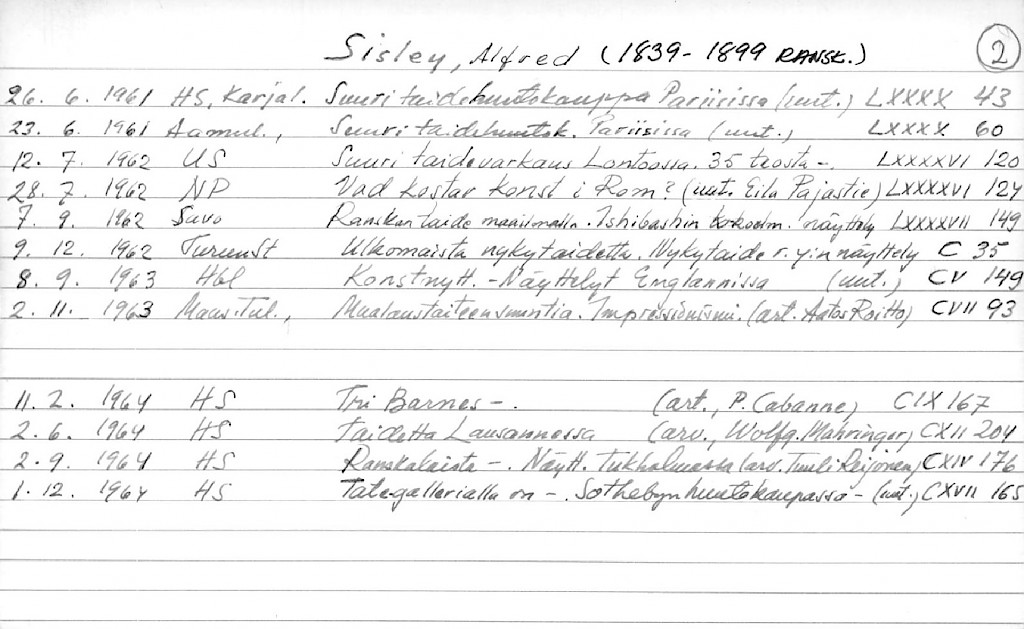 Sisley, Alfred (1839-1899 RANSK.) 2
26. 6. 1961 HS, Karjal. Suuri taidehuutokauppa Pariisissa (uut.) LXXXX 43
23. 6. 1961 Aamul., Suuri taidehuutok. Pariisissa (uut.) LXXXX 60
12. 7. 1962 US Suuri taidevarkaus Lontoossa. 35 teosta -. LXXXXVI 120
28. 7. 1962 NP Vad kostar konst i Rom? (uut. Eila Pajastie) LXXXXVI 124
7. 9. 1962 Savo Ranskan taide maailmalla. Ishibashin kokoelm. näyttely LXXXXVII 149
9. 12. 1962 TurunSt Ulkomaista nykytaidetta. Nykytaide r.y:n näyttely C 35
8. 9. 1963 Hbl Konstnytt. - Näyttelyt Englannissa (uut.) CV 149
2. 11. 1963 Maas.Tul., Maalaustaiteen suuntia. Impressionismi. (art. Aatos Roitto) CVII 93
11. 2. 1964 HS Tri Barnes -. (art., P. Cabanne) CIX 167
2. 6. 1964 HS Taidetta Lausannessa (arv., Wolfg. Mahringer) CXII 204
2. 9. 1964 HS Ranskalaista -. Näytt. Tukholmassa (arv. Tuuli Reijonen) CXIV 176
1. 12. 1964 HS Tategallerialla on -. Sothebyn huutokaupassa - (uut.) CXVII 165